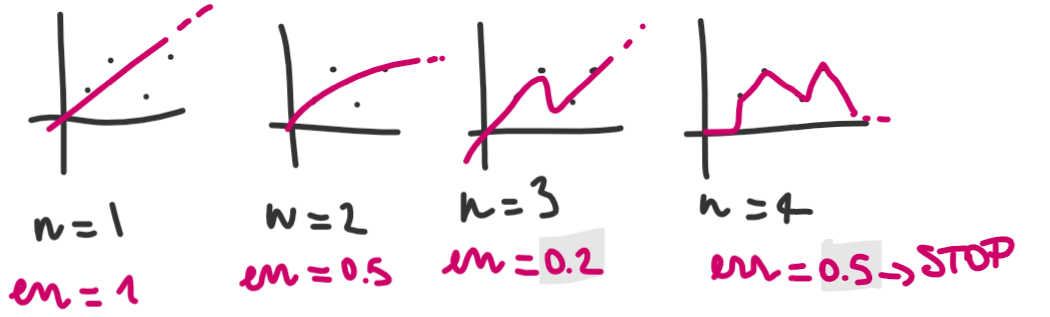 n=1
err=1
n=2
err=0.5
n=3
err=0.2
n=4
err=0.5→STOP